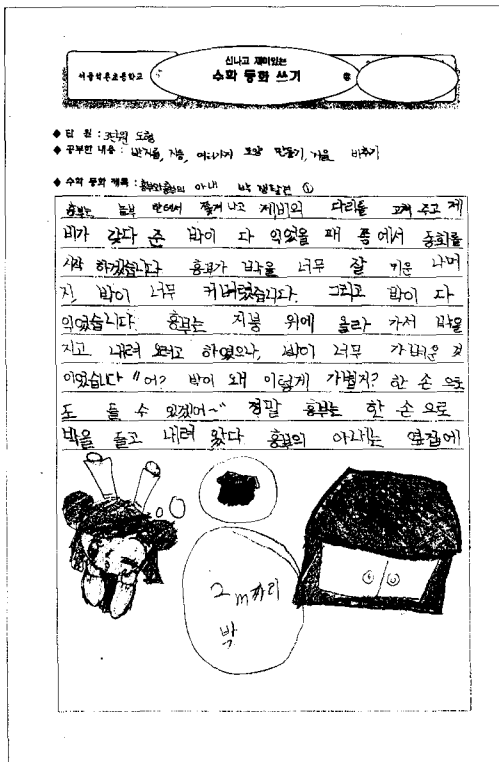 신나고 재미있는
수학 동화 쓰기
◆ 단 원 : 3단원 도형
◆ 공부한 내용 : 반지름, 지름, 여러가지 모양 만들기, 거울 비추기
◆ 수학 동화 제목 : 아내 박 ①
흥부는 놀부 한테서 쫓겨 나고 제비의 다리를 고쳐 주고 제
비가 갖다 준 박이 다 익었을 때 쯤에서 동화를
시작 하겠습니다 흥부가 박을 너무 잘 키운 나머
지, 박이 너무 커버렸습니다. 그리고 박이 다
익었습니다. 흥부는 지붕 위에 올라 가서 박을
지고 내려 오려고 하였으나, 박이 너무 가벼운 것
이었습니다 "어? 박이 왜 이렇게 가볍지? 한 손으로
도 들 수 있겠어~" 정말 흥부는 한 손으로
박을 들고 내려 왔다 흥부의 아내는 옆집에
2m짜리
박